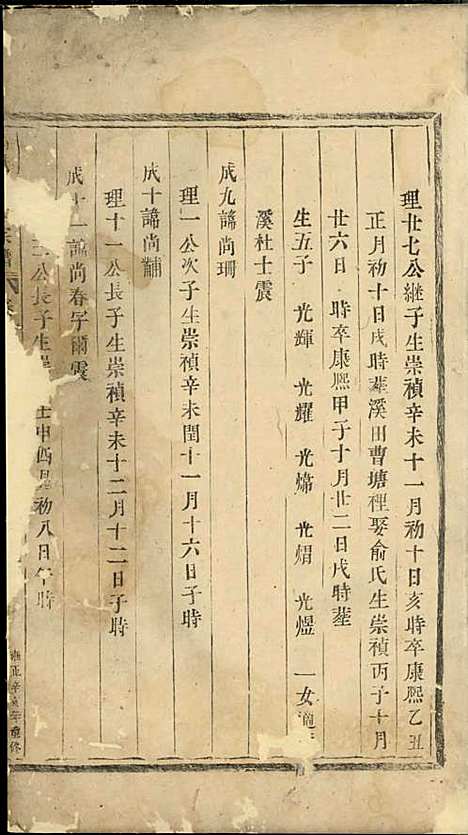 理廿七公繼子生崇禎辛未十一月初十日亥時卒康熙乙丑
正月初十日戌時葬溪田曹塘裡娶俞氏生崇禎丙子十月
廿六日 時卒康熙甲子十月廿二日戌時葬
生五子 光輝 光耀 光煒 光熠 光煜 一女適
溪杜士震
成九諱尚珊
理一公次子生崇禎辛未閏十一月十六日子時
成十諱尚黼
理十一公長子生崇禎辛未十二月十二日子時
成十一諱尚春字爾震
公長子生崇 壬申四月初八日午時
雍正辛亥年重修